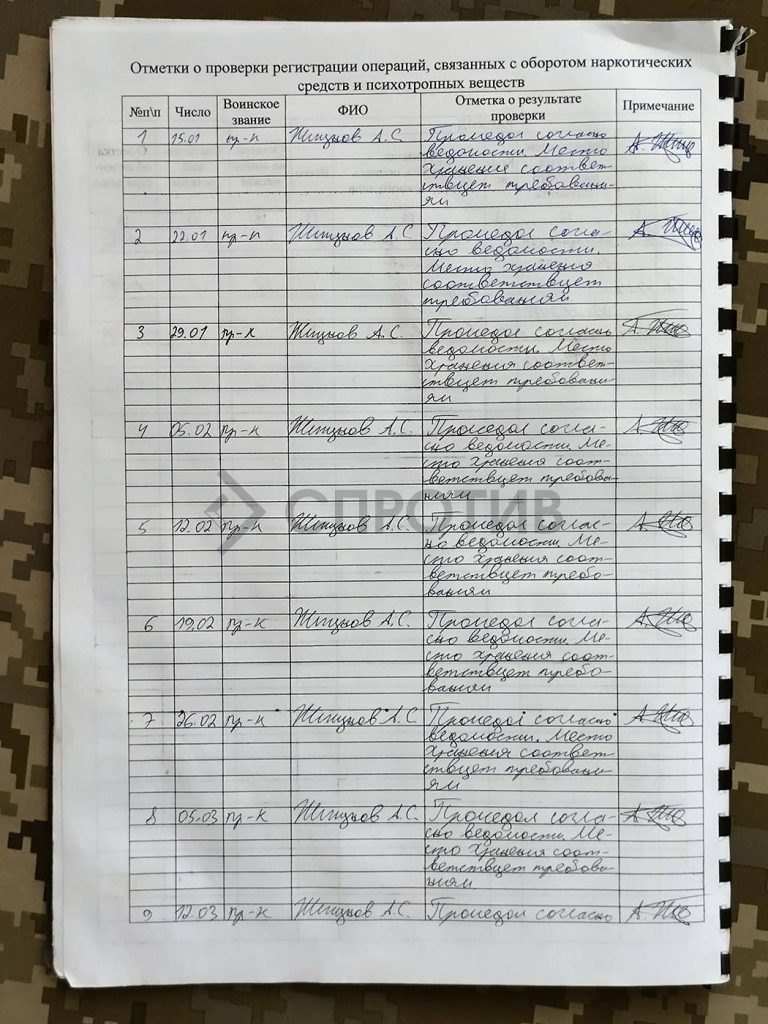 Отметки о проверки регистрации операций, связанных с оборотом наркотических
средств и психотропных веществ
№п\п Число Воинское звание ФИО Отметка о результате проверки Примечание
1 15.01 пр-к А.С Промедол согласно
ведомости. Место
хранение соответ-
ствует требовани-
ям
2 22.01 пр-к А.С Промедол согла-
сно ведомости.
Место хранения
соответствует
требованиям
3 29.01 пр-к А.С. Промедол согласно
ведомости. Место
хранения соответ-
ствует требовани-
ям
4 05.02 пр-к А.С. Промедол согла-
сно ведомости. Ме-
сто хранения соот-
ветствует требова-
ниям
СПРОТИВ
5 12.02 пр-к А.С. Промедол соглас-
но ведомости. Ме-
сто хранения соот-
ветствует требо-
ваниям
6 19.02 пр-к А.С. Промедол согла-
сно ведомости. Ме-
сто хранения соот-
ветствует требо-
ваниям
7 26.02 пр-к А.С. Промедол согласно
ведомости. Место
хранения соответ-
ствует требовани-
ям
8 05.03 пр-к А.С. Промедол согла-
сно ведомости. Ме-
сто хранения соот-
ветствует требова-
ниям
9 12.03 пр-к А.С. Промедол согласно